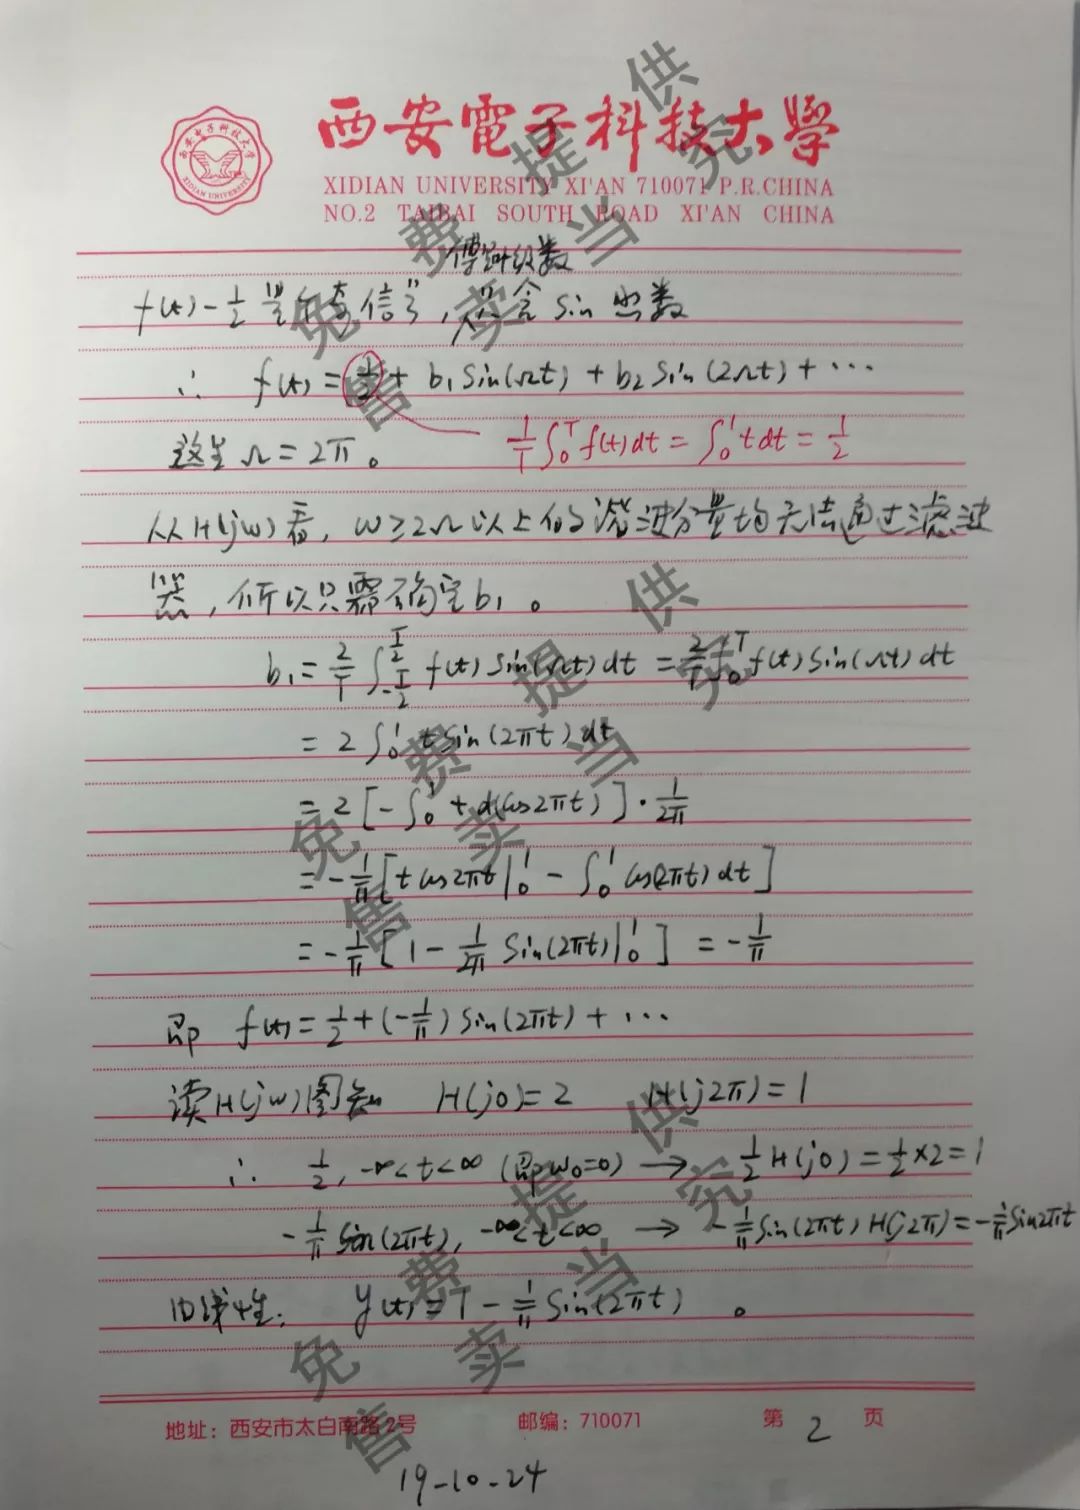 西安電子科技大學
XIDIAN UNIVERSITY XI'AN 710071 P.R.CHINA
NO.2 TAIBAI SOUTH ROAD XI'AN CHINA
傅里叶级数
f(t)-1/2 是个奇信号, 只含 sin 函数
∴ f(t) = 1/2 + b₁ sin(Ωt) + b₂ sin(2Ωt) + ⋯
这里 Ω = 2π。 1/T ∫₀ᵀ f(t)dt = ∫₀¹ t dt = 1/2
从 H(jω) 看, ω≥2Ω 以上的谐波分量均无法通过滤波
器, 所以只需确定 b₁。
b₁ = 2/T ∫_{-T/2}^{T/2} f(t) sin(Ωt) dt = 2/T ∫₀ᵀ f(t) sin(Ωt) dt
= 2 ∫₀¹ t sin(2πt) dt
= 2 [-∫₀¹ t d(cos2πt)] · 1/2π
= -1/π [t cos2πt |₀¹ - ∫₀¹ cos(2πt) dt]
= -1/π [1 - 1/2π sin(2πt)|₀¹] = -1/π
即 f(t) = 1/2 + (-1/π) sin(2πt) + ⋯
读 H(jω) 图知 H(j0) = 2 H(j2π) = 1
∴ 1/2, -∞<t<∞ (即 ω₀=0) → 1/2 H(j0) = 1/2 × 2 = 1
-1/π sin(2πt), -∞<t<∞ → -1/π sin(2πt) H(j2π) = -1/π sin2πt
由线性: y(t) = 1 - 1/π sin(2πt) 。
地址: 西安市太白南路2号 邮编: 710071 第 2 页
19-10-24
免费提供
售卖当究
免费提供
售卖当究
免费提供
售卖当究